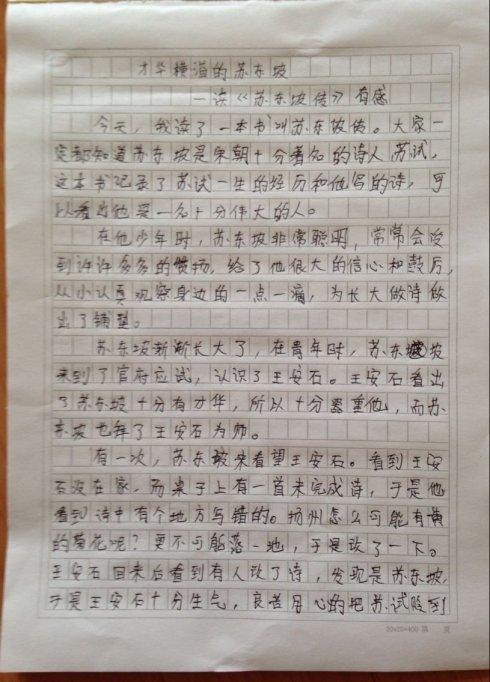 才华横溢的苏东坡
—读《苏东坡传》有感
今天，我读了一本书叫苏东坡传。大家一
定都知道苏东坡是宋朝十分著名的诗人苏试，
这本书记录了苏试一生的经历和他写的诗，可
以看出他是一名十分伟大的人。
在他少年时，苏东坡非常聪明，常常会受
到许许多多的赞扬，给了他很大的信心和鼓厉，
从小认真观察身边的一点一滴，为长大做诗做
出了铺垫。
苏东坡渐渐长大了，在青年时，苏东坡
来到了官府应试，认识了王安石。王安石看出
了苏东坡十分有才华，所以十分器重他，而苏
东坡也拜了王安石为师。
有一次，苏东坡来看望王安石。看到王安
石没在家，而桌子上有一首未完成诗，于是他
看到诗中有个地方写错的。扬州怎么可能有黄
的菊花呢？更不可能落一地，于是改了一下。
王安石回来后看到有人改了诗，发现是苏东坡，
于是王安石十分生气，良苦用心的把苏试贬到
20×20=400 第 页